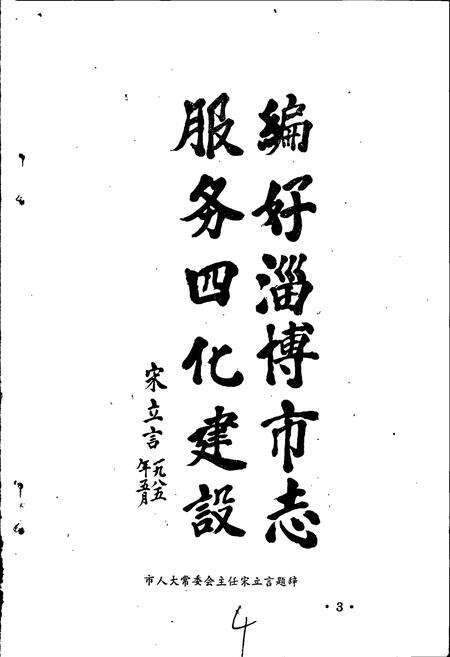 编好淄博市志
服务四化建設
宋立言
一九八五
年五月
市人大常委会主任宋立言题辞
·3·
4